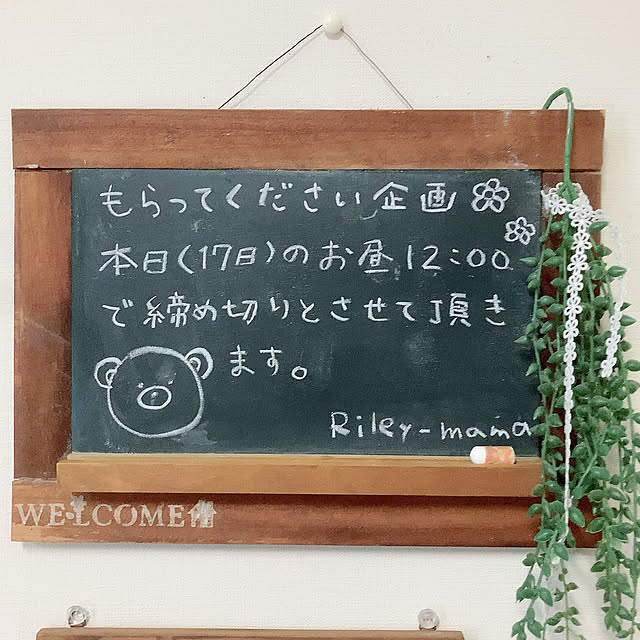 もらってください企画
本日(17日)のお昼12:00
で締め切りとさせて頂き
ます。
Riley-mama
WELCOME